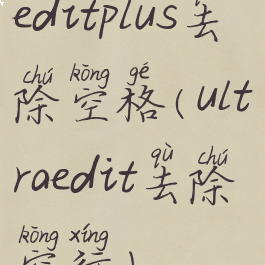 editplus去
chú kōng gé
除空格(ult
qù chú
raedit去除
kōng xíng
空行)